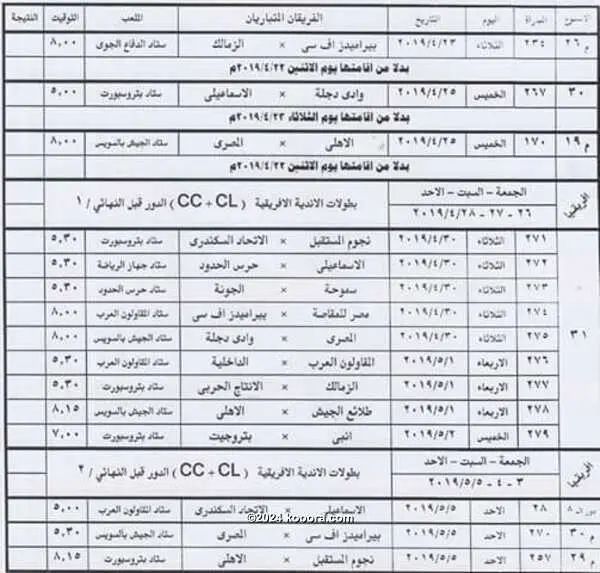 الاسبوع المباراة اليوم التاريخ الفريقان المتباريان الملعب التوقيت النتيجة
م ٢٦ ٢٣٤ الثلاثاء ٢٠١٩/٤/٢٣ بيراميدز اف سى × الزمالك ستاد الدفاع الجوى ٨,٠٠
بدلا من اقامتها يوم الاثنين ٢٠١٩/٤/٢٢م
٣٠ ٢٦٧ الخميس ٢٠١٩/٤/٢٥ وادى دجلة × الاسماعيلى ستاد بتروسبورت ٥,٠٠
بدلا من اقامتها يوم الثلاثاء ٢٠١٩/٤/٢٣م
م ١٩ ١٧٠ الخميس ٢٠١٩/٤/٢٥ الاهلى × المصرى ستاد الجيش بالسويس ٨,٠٠
بدلا من اقامتها يوم الاثنين ٢٠١٩/٤/٢٢م
افريقيا الجمعة - السبت - الاحد بطولات الاندية الافريقية (CC + CL) الدور قبل النهائي / ١
٢٦ - ٢٧ - ٢٠١٩/٤/٢٨
٣١ ٢٧١ الثلاثاء ٢٠١٩/٤/٣٠ نجوم المستقبل × الاتحاد السكندرى ستاد بتروسبورت ٥,٣٠
٢٧٢ الثلاثاء ٢٠١٩/٤/٣٠ الاسماعيلى × حرس الحدود ستاد جهاز الرياضة ٥,٣٠
٢٧٣ الثلاثاء ٢٠١٩/٤/٣٠ سموحة × الجونة ستاد حرس الحدود ٥,٣٠
٢٧٤ الثلاثاء ٢٠١٩/٤/٣٠ مصر للمقاصة × بيراميدز اف سى ستاد المقاولون العرب ٨,٠٠
٢٧٥ الثلاثاء ٢٠١٩/٤/٣٠ المصرى × وادى دجلة ستاد الجيش بالسويس ٨,٠٠
٢٧٦ الاربعاء ٢٠١٩/٥/١ المقاولون العرب × الداخلية ستاد المقاولون العرب ٥,٣٠
٢٧٧ الاربعاء ٢٠١٩/٥/١ الزمالك × الانتاج الحربى ستاد بتروسبورت ٥,٣٠
٢٧٨ الاربعاء ٢٠١٩/٥/١ طلائع الجيش × الاهلى ستاد الجيش بالسويس ٨,١٥
٢٧٩ الخميس ٢٠١٩/٥/٢ انبى × بتروجيت ستاد بتروسبورت ٧,٠٠
افريقيا الجمعة - السبت - الاحد بطولات الاندية الافريقية (CC + CL) الدور قبل النهائي / ٢
٣ - ٤ - ٢٠١٩/٥/٥
٨ ٢٨ الاحد ٢٠١٩/٥/٥ الاسماعيلى × الاتحاد السكندرى ستاد المقاولون العرب ٥,٠٠
م ٣٠ ٢٧٠ الاحد ٢٠١٩/٥/٥ بيراميدز اف سى × المصرى ستاد الجيش بالسويس ٥,٣٠
م ٢٩ ٢٥٧ الاحد ٢٠١٩/٥/٥ نجوم المستقبل × الاهلى ستاد بتروسبورت ٨,١٥
©2024 kooora.com